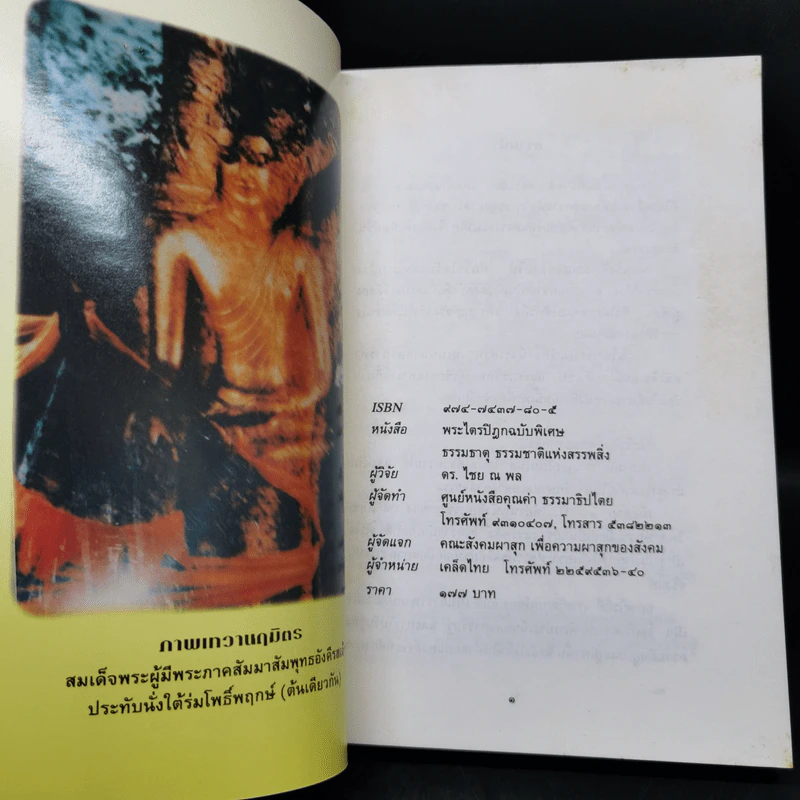 ภาพเทวานฤมิตร
สมเด็จพระผู้มีพระภาคสัมมาสัมพุทธอังคีรส
ประทับนั่งใต้ร่มโพธิ์พฤกษ์ (ต้นเดียวกัน)
ISBN ๙๗๔-๗๔๓๗-๘๐-๕
หนังสือ พระไตรปิฎกฉบับพิเศษ
ธรรมธาตุ ธรรมชาติแห่งสรรพสิ่ง
ผู้วิจัย ดร. ไชย ณ พล
ผู้จัดทำ ศูนย์หนังสือคุณค่า ธรรมาธิปไตย
โทรศัพท์ ๙๓๑๐๔๐๗, โทรสาร ๕๓๘๒๒๑๓
ผู้จัดแจก คณะสังคมผาสุก เพื่อความผาสุกของสังคม
ผู้จำหน่าย เคล็ดไทย โทรศัพท์ ๒๒๕๙๕๓๖-๔๐
ราคา ๑๗๗ บาท
๑